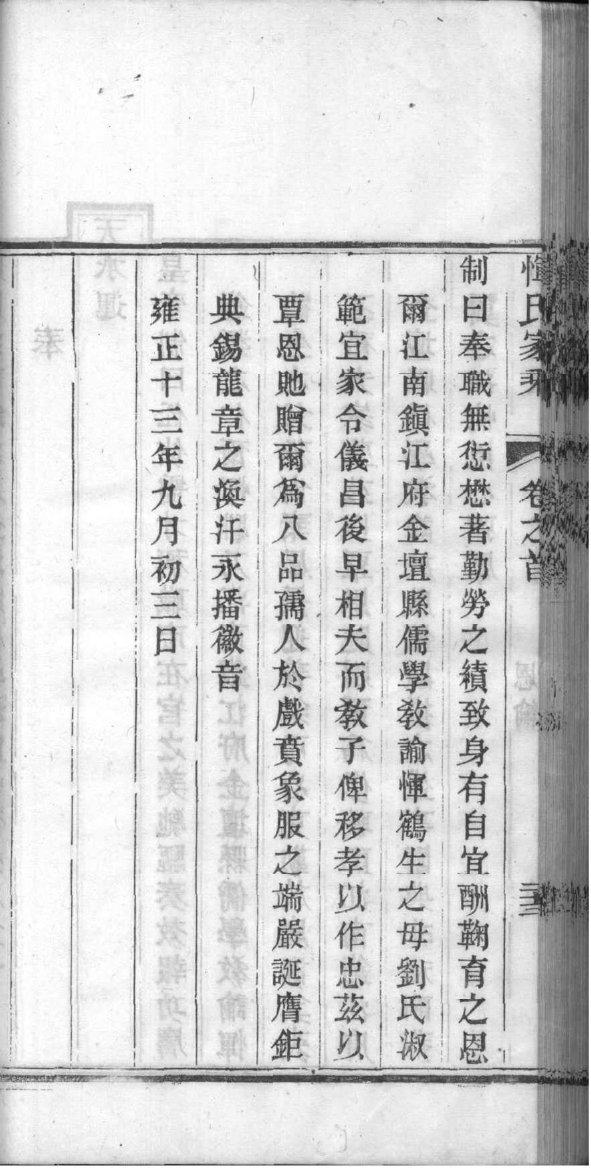 惲氏家乘 卷之首
制曰奉職無愆懋著勤勞之績致身有自宜酬鞠育之恩
爾江南鎭江府金壇縣儒學敎諭惲鶴生之母劉氏淑
範宜家令儀昌後早相夫而敎子俾移孝以作忠茲以
覃恩貤贈爾爲八品孺人於戲賁象服之端嚴誕膺鉅
典錫龍章之渙汗永播徽音
雍正十三年九月初三日